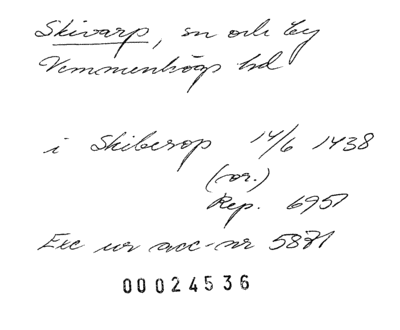 Skivarp, sn och by
Vemmenhögs hd
i Skiberop 14/6 1438
(or.)
Rep. 6951
Exc ur acc-nr 5871
00024536